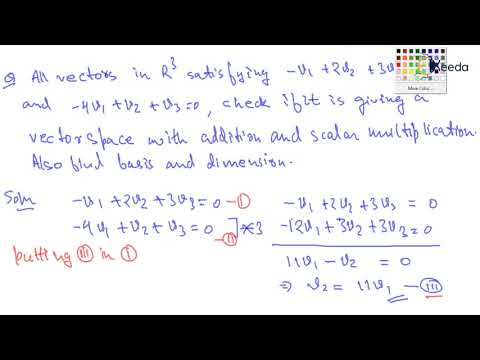 Q All vectors in R³ satisfying -v₁ + 2v₂ + 3v
Keeda
More Color...
and -4v₁ + v₂ + v₃ = 0, check if it is giving a
vector space with addition and scalar multiplication.
Also find basis and dimension.
Solⁿ -v₁ + 2v₂ + 3v₃ = 0 -Ⓘ
-4v₁ + v₂ + v₃ = 0 ] ×3
-Ⓘⓘ
putting ⓘⓘⓘ in Ⓘ
-v₁ + 2v₂ + 3v₃ = 0
-12v₁ + 3v₂ + 3v₃ = 0
11v₁ - v₂ = 0
⇒ v₂ = 11v₁ - ⓘⓘⓘ